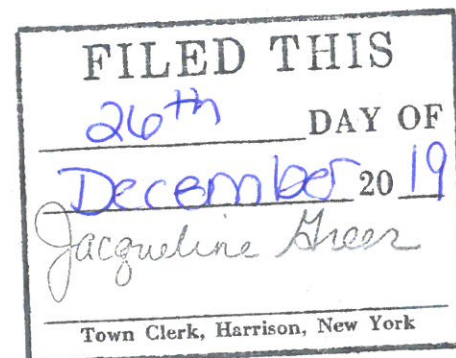 FILED THIS
26th DAY OF
December 20 19
Jacqueline Greer
Town Clerk, Harrison, New York